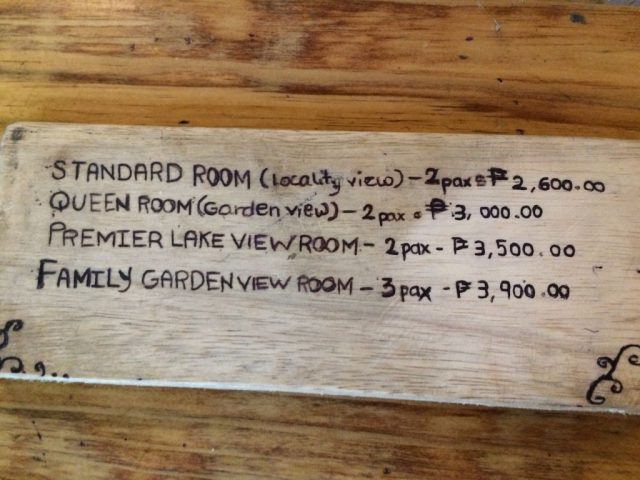 STANDARD ROOM (locality view) - 2pax = ₱ 2,600.00
QUEEN ROOM (Garden view) - 2pax = ₱ 3,000.00
PREMIER LAKE VIEW ROOM - 2pax - ₱ 3,500.00
FAMILY GARDEN VIEW ROOM - 3pax - ₱ 3,900.00